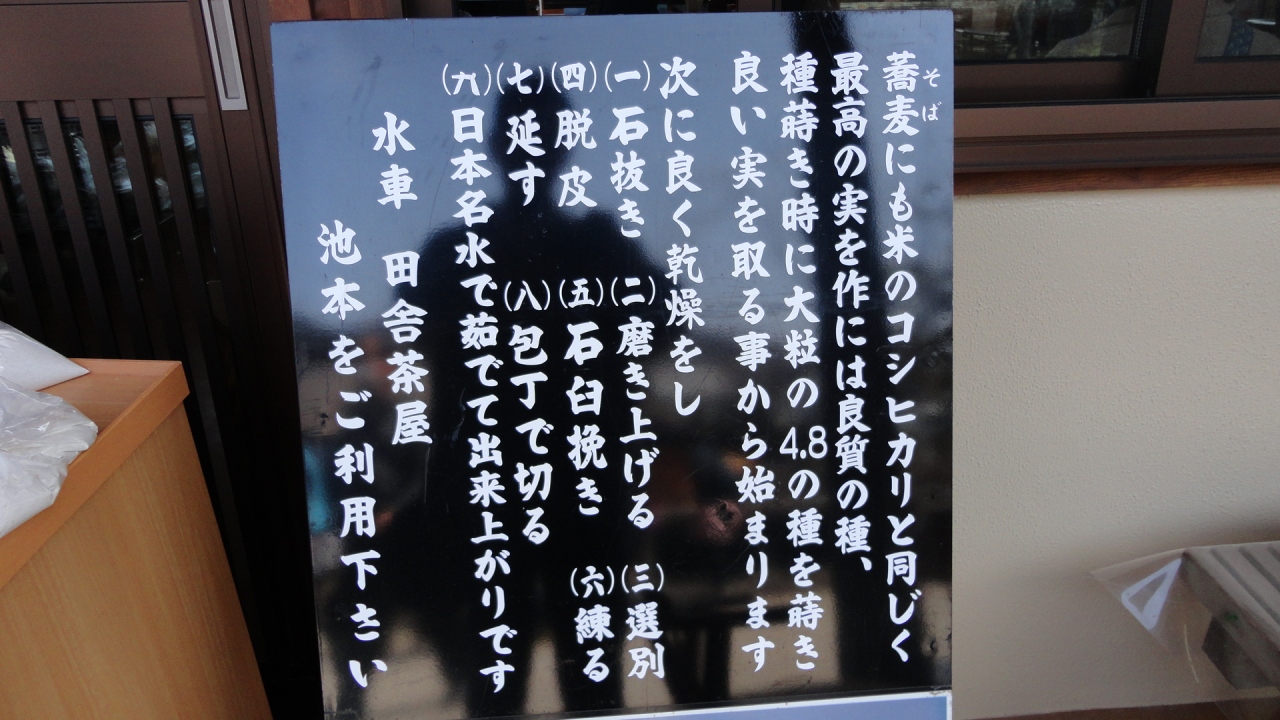 蕎麦にも米のコシヒカリと同じく
そば
最高の実を作には良質の種、
種蒔き時に大粒の4.8の種を蒔き
良い実を取る事から始まります
次に良く乾燥をし
(一)石抜き (二)磨き上げる (三)選別
(四)脱皮 (五)石臼挽き (六)練る
(七)延す (八)包丁で切る
(九)日本名水で茹でて出来上がりです
水車 田舎茶屋
池本をご利用下さい